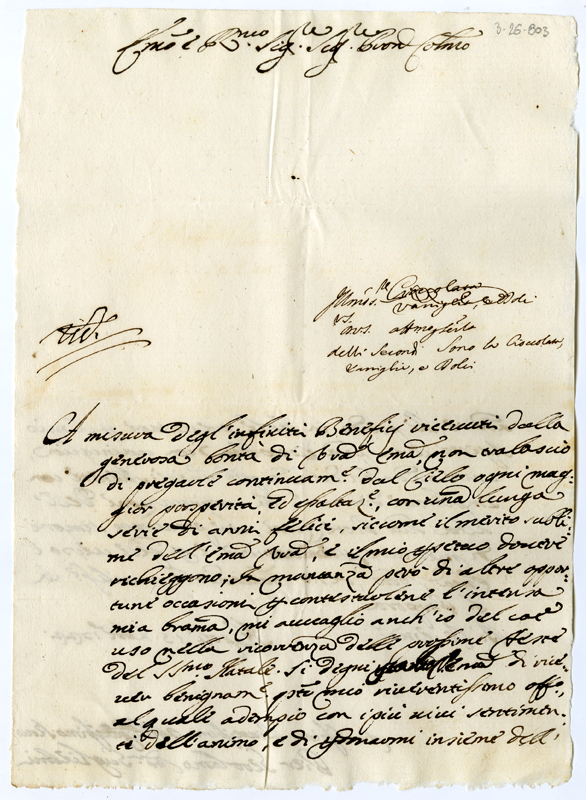 3-26-803
Emo e Rmo Sigr Sigr Pron Colmo
Illmo
vaniglie, e Dolci
delli Secondi sono la Cioccolata,
vaniglie, e Dolci
A misura degl'infiniti Beneficij ricevuti dalla
generosa bontà di Vra Emza non tralascio
di pregarle continuamte dal Cielo ogni mag=
gior prosperità, ed esaltaze, con una lunga
serie di anni felici, siccome il merito subli=
me dell'Emza Vra, e il mio ossequio dovere
richieggono; In mancanza però di altre oppor=
tune occasioni p contestarlene l'intensa
mia brama, mi avvaglio anch'io del co
uso nella ricorrenza delle prossime feste
del SSmo Natale. Si degni Emza di rice=
vere benignamte qsto mio riverentissimo offo,
al quale adempio con i più vivi sentimen=
ti dell'animo, e di confirmarmi insieme dell'